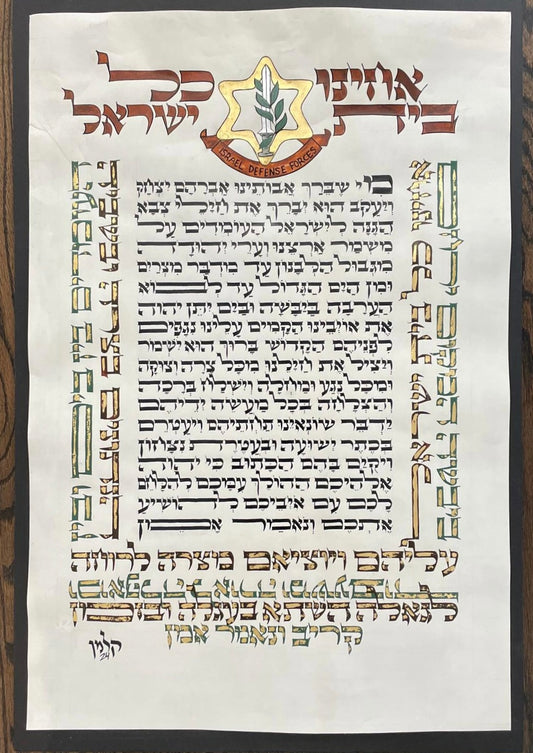 אחינו כל
בית ישראל
ISRAEL DEFENSE FORCES
מי שברך אבותינו אברהם יצחק
ויעקב הוא יברך את חילי צבא
הגנה לישראל העומדים על
משמר ארצנו וערי יהודה
מגבול הלבנון עד מדבר מצרים
ומן הים הגדול עד לבוא
הערבה ביבשה ובים יתן יהוה
את אויבינו הקמים עלינו נגפים
לפניהם הקדוש ברוך הוא ישמור
ויציל את חילנו מכל צרה וצוקה
ומכל נגע ומחלה וישלח ברכה
והצלחה בכל מעשה ידיהם
ידבר שונאינו תחתיהם ויעטרם
בכתר ישועה ובעטרת נצחון
ויקים בהם הכתוב כי יהוה
אלהיכם ההולך עמכם להלחם
לכם עם איביכם להושיע
אתכם ונאמר אמן
אחינו כל בית ישראל
הנתונים בצרה ובשביה
העומדים בין בים ובין
ביבשה המקום ירחם
עליהם ויוציאם מצרה לרוחה
ומאפלה לאורה ומשעבוד
לגאלה השתא בעגלא ובזמן
קריב ונאמר אמן
קלמן
24